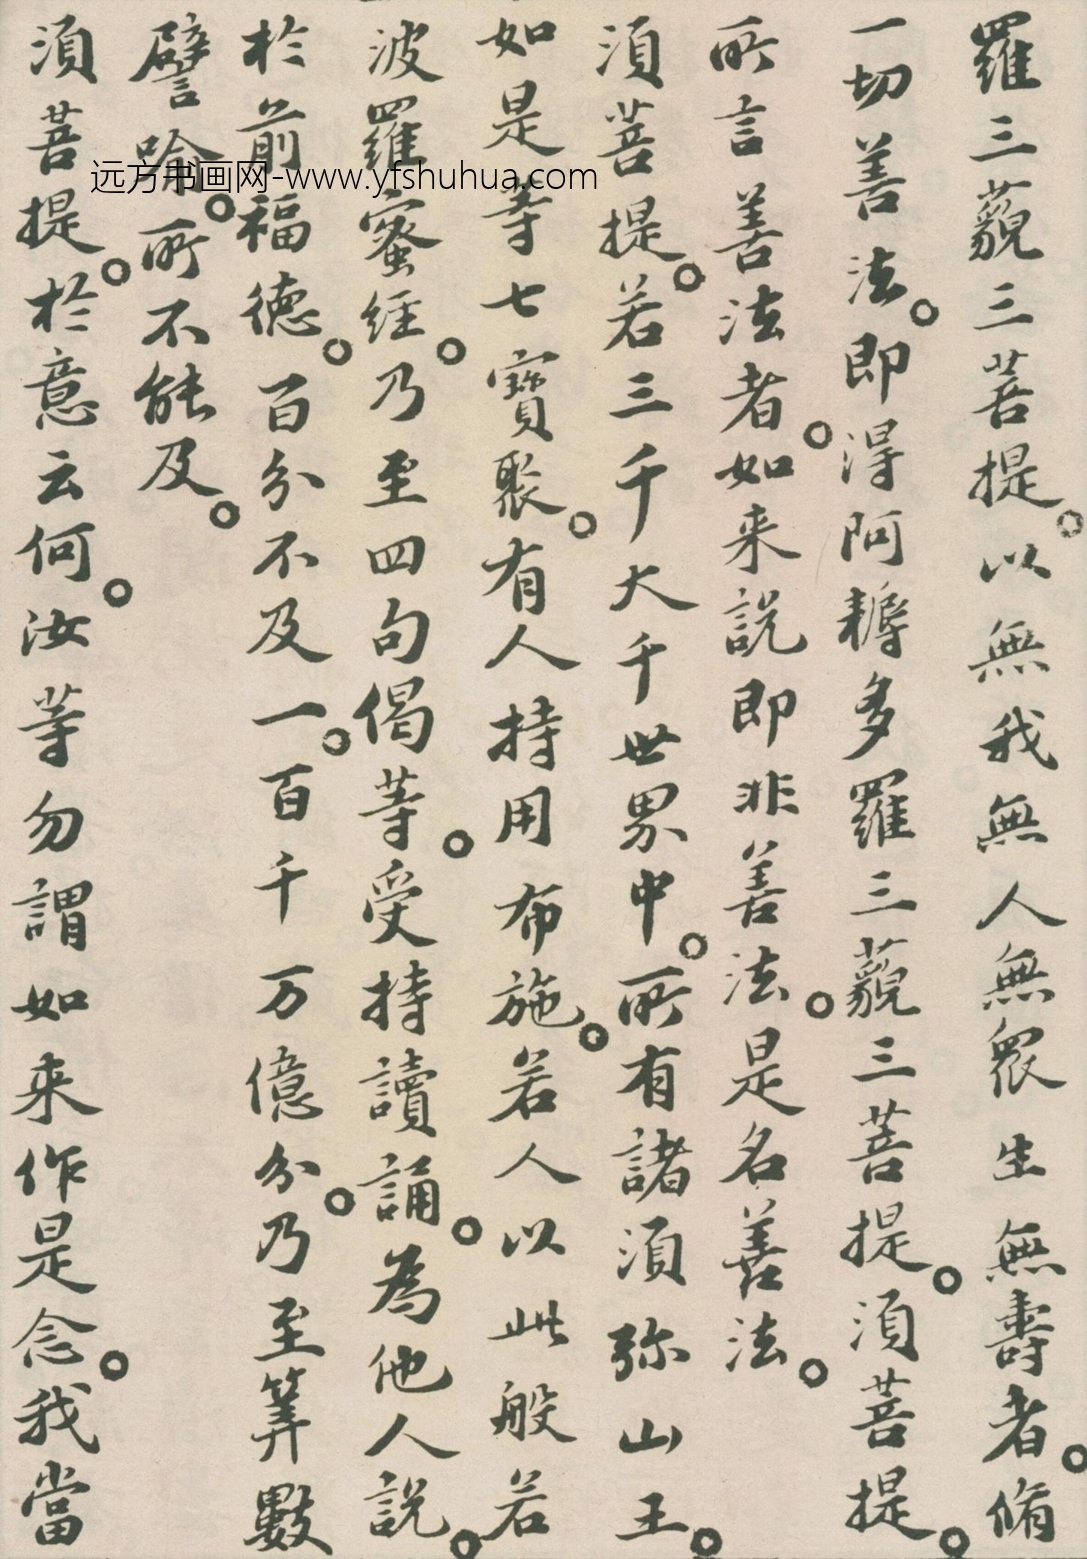 羅三藐三菩提。以無我無人無衆生無壽者。脩
一切善法。即得阿耨多羅三藐三菩提。須菩提。
所言善法者。如来説即非善法。是名善法。
須菩提。若三千大千世界中。所有諸須弥山王。
如是等七寶聚。有人持用布施。若人以此般若
波羅蜜経。乃至四句偈等。受持讀誦。為他人説。
於前福德。百分不及一。百千万億分。乃至筭數
譬喻。所不能及。
須菩提。於意云何。汝等勿謂如来作是念。我當
远方书画网-www.yfshuhua.com